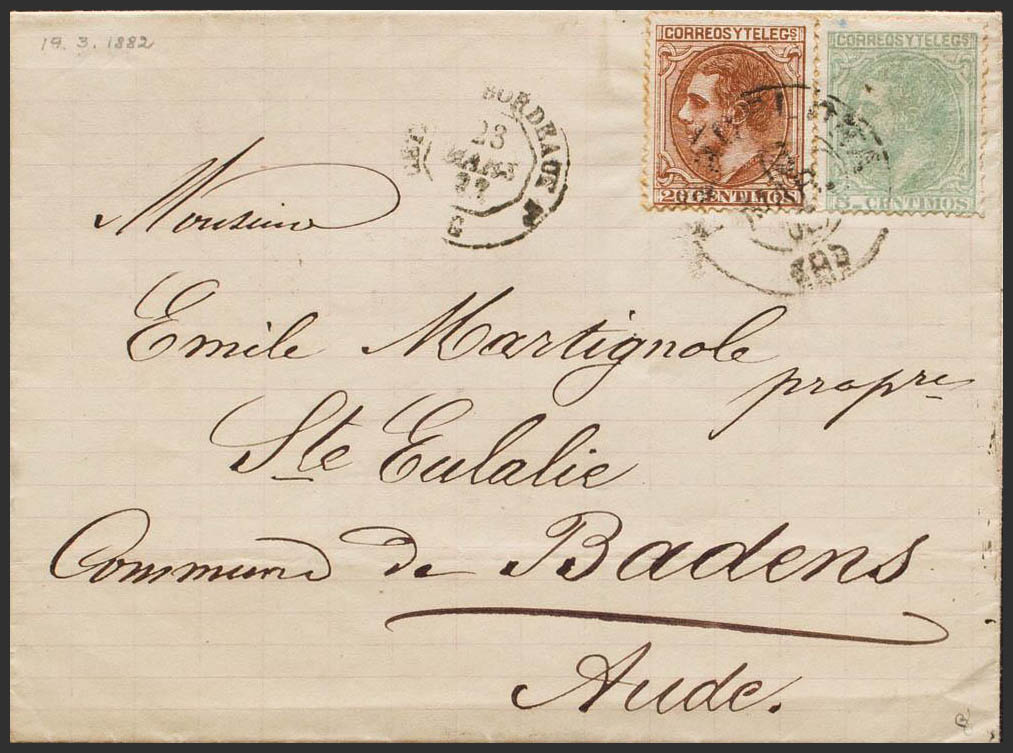 19. 3. 1882
CORREOS Y TELEGS
20 CENTIMOS
CORREOS Y TELEGS
5 CENTIMOS
BORDEAUX
23
MARS
Monsieur
Emile Martignole
propre
Ste Eulalie
Commune de Badens
Aude.